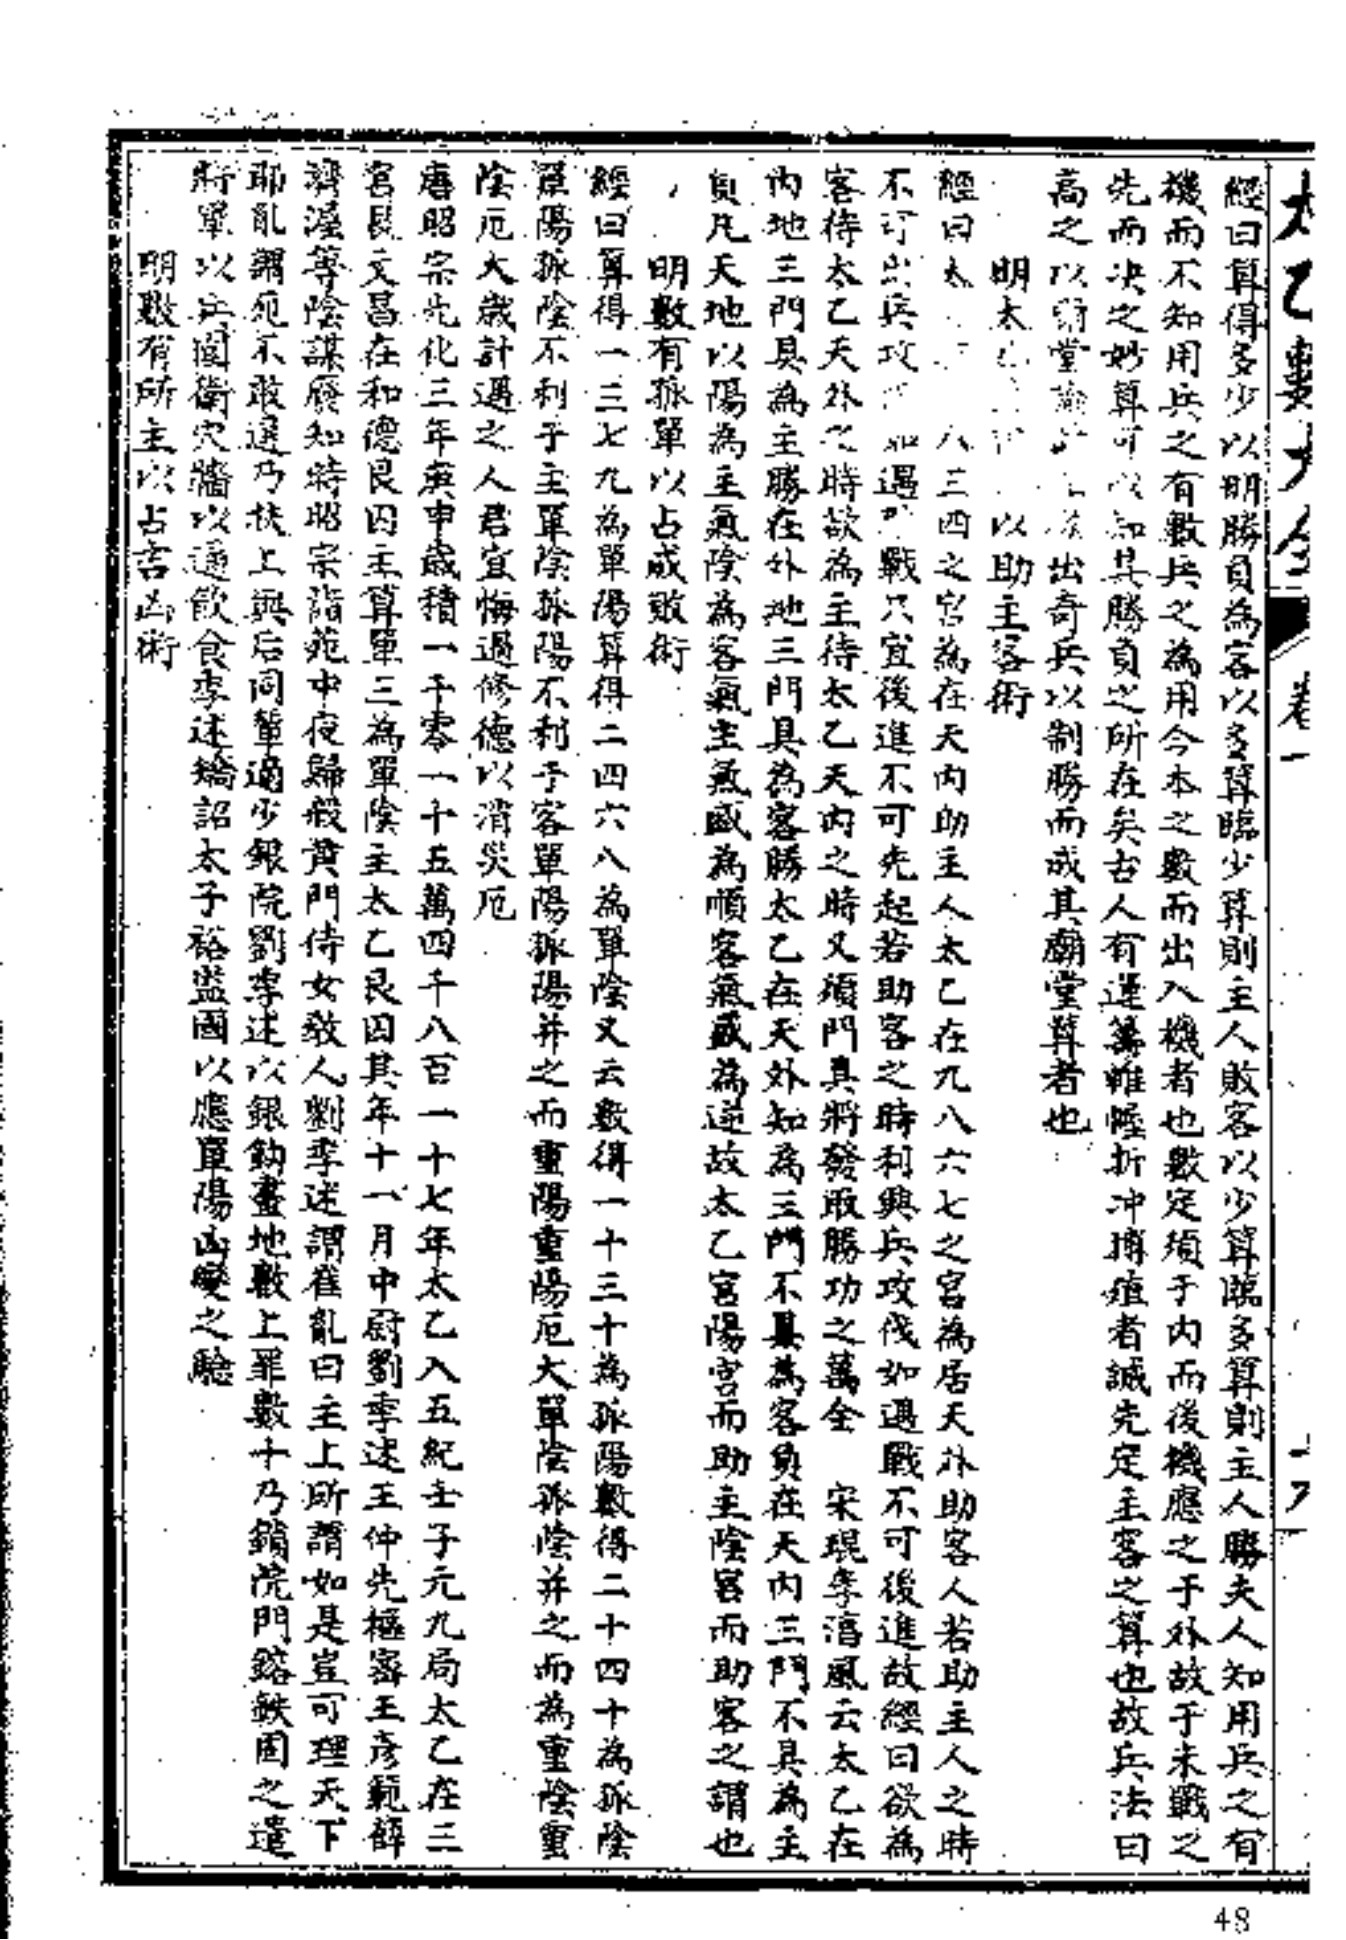 太乙數大全 卷一
經曰算得多少以明勝負為客以多算臨少算則主人敗客以少算臨多算則主人勝夫人知用兵之有
機而不知用兵之有數兵之為用今本之數而出入機者也數定須于内而後機應之于外故于未戰之
先而决之妙算可以知其勝負之所在矣古人有運籌帷幄折冲摶殖者誠先定主客之算也故兵法曰
高之以廟堂 出奇兵以制勝而成其廟堂算者也
明太 以助主客術
經曰太 八三四之宮為在天内助主人太乙在九八六七之宮為居天外助客人若助主人之時
不可出兵攻 如遇 戰只宜後進不可先起若助客之時利興兵攻伐如遇戰不可後進故經曰欲為
客待太乙天外之時欲為主待太乙天内之時又須門具將發取勝功之萬全 宋琨李淳風云太乙在
内地三門具為主勝在外地三門具為客勝太乙在天外知為三門不具為客負在天内三門不具為主
負凡天地以陽為主氣陰為客氣主氣盛為順客氣盛為逆故太乙宮陽宮而助主陰宮而助客之謂也
明數有孤單以占成敗術
經曰算得一三七九為單陽算得二四六八為單陰又云數得一十三十為孤陽數得二十四十為孤陰
單陽孤陰不利于主單陰孤陽不利于客單陽孤陽并之而重陽重陽厄大單陰孤陰并之而為重陰重
陰厄大歲計遇之人君宜悔過修德以消災厄
唐昭宗光化三年庚申歲積一千零一十五萬四千八百一十七年太乙入五紀壬子元九局太乙在三
宮艮文昌在和德艮囚主算單三為單陰主太乙艮囚其年十一月中尉劉季述王仲先樞密王彥範薛
濟渥等陰謀廢知時昭宗詣苑中夜歸殺黄門侍女數人劉季述謂崔亂曰主上所謂如是豈可理天下
耶亂謂死不敢違乃扶上與后同輦適少銀院劉季述以銀鈎畫地數上罪數十乃鎖院門鎔鉄固之遣
將軍以兵圍衛穴牆以通飲食季述矯詔太子裕監國以應單陽凶變之驗
明數有所主以占吉凶術
48